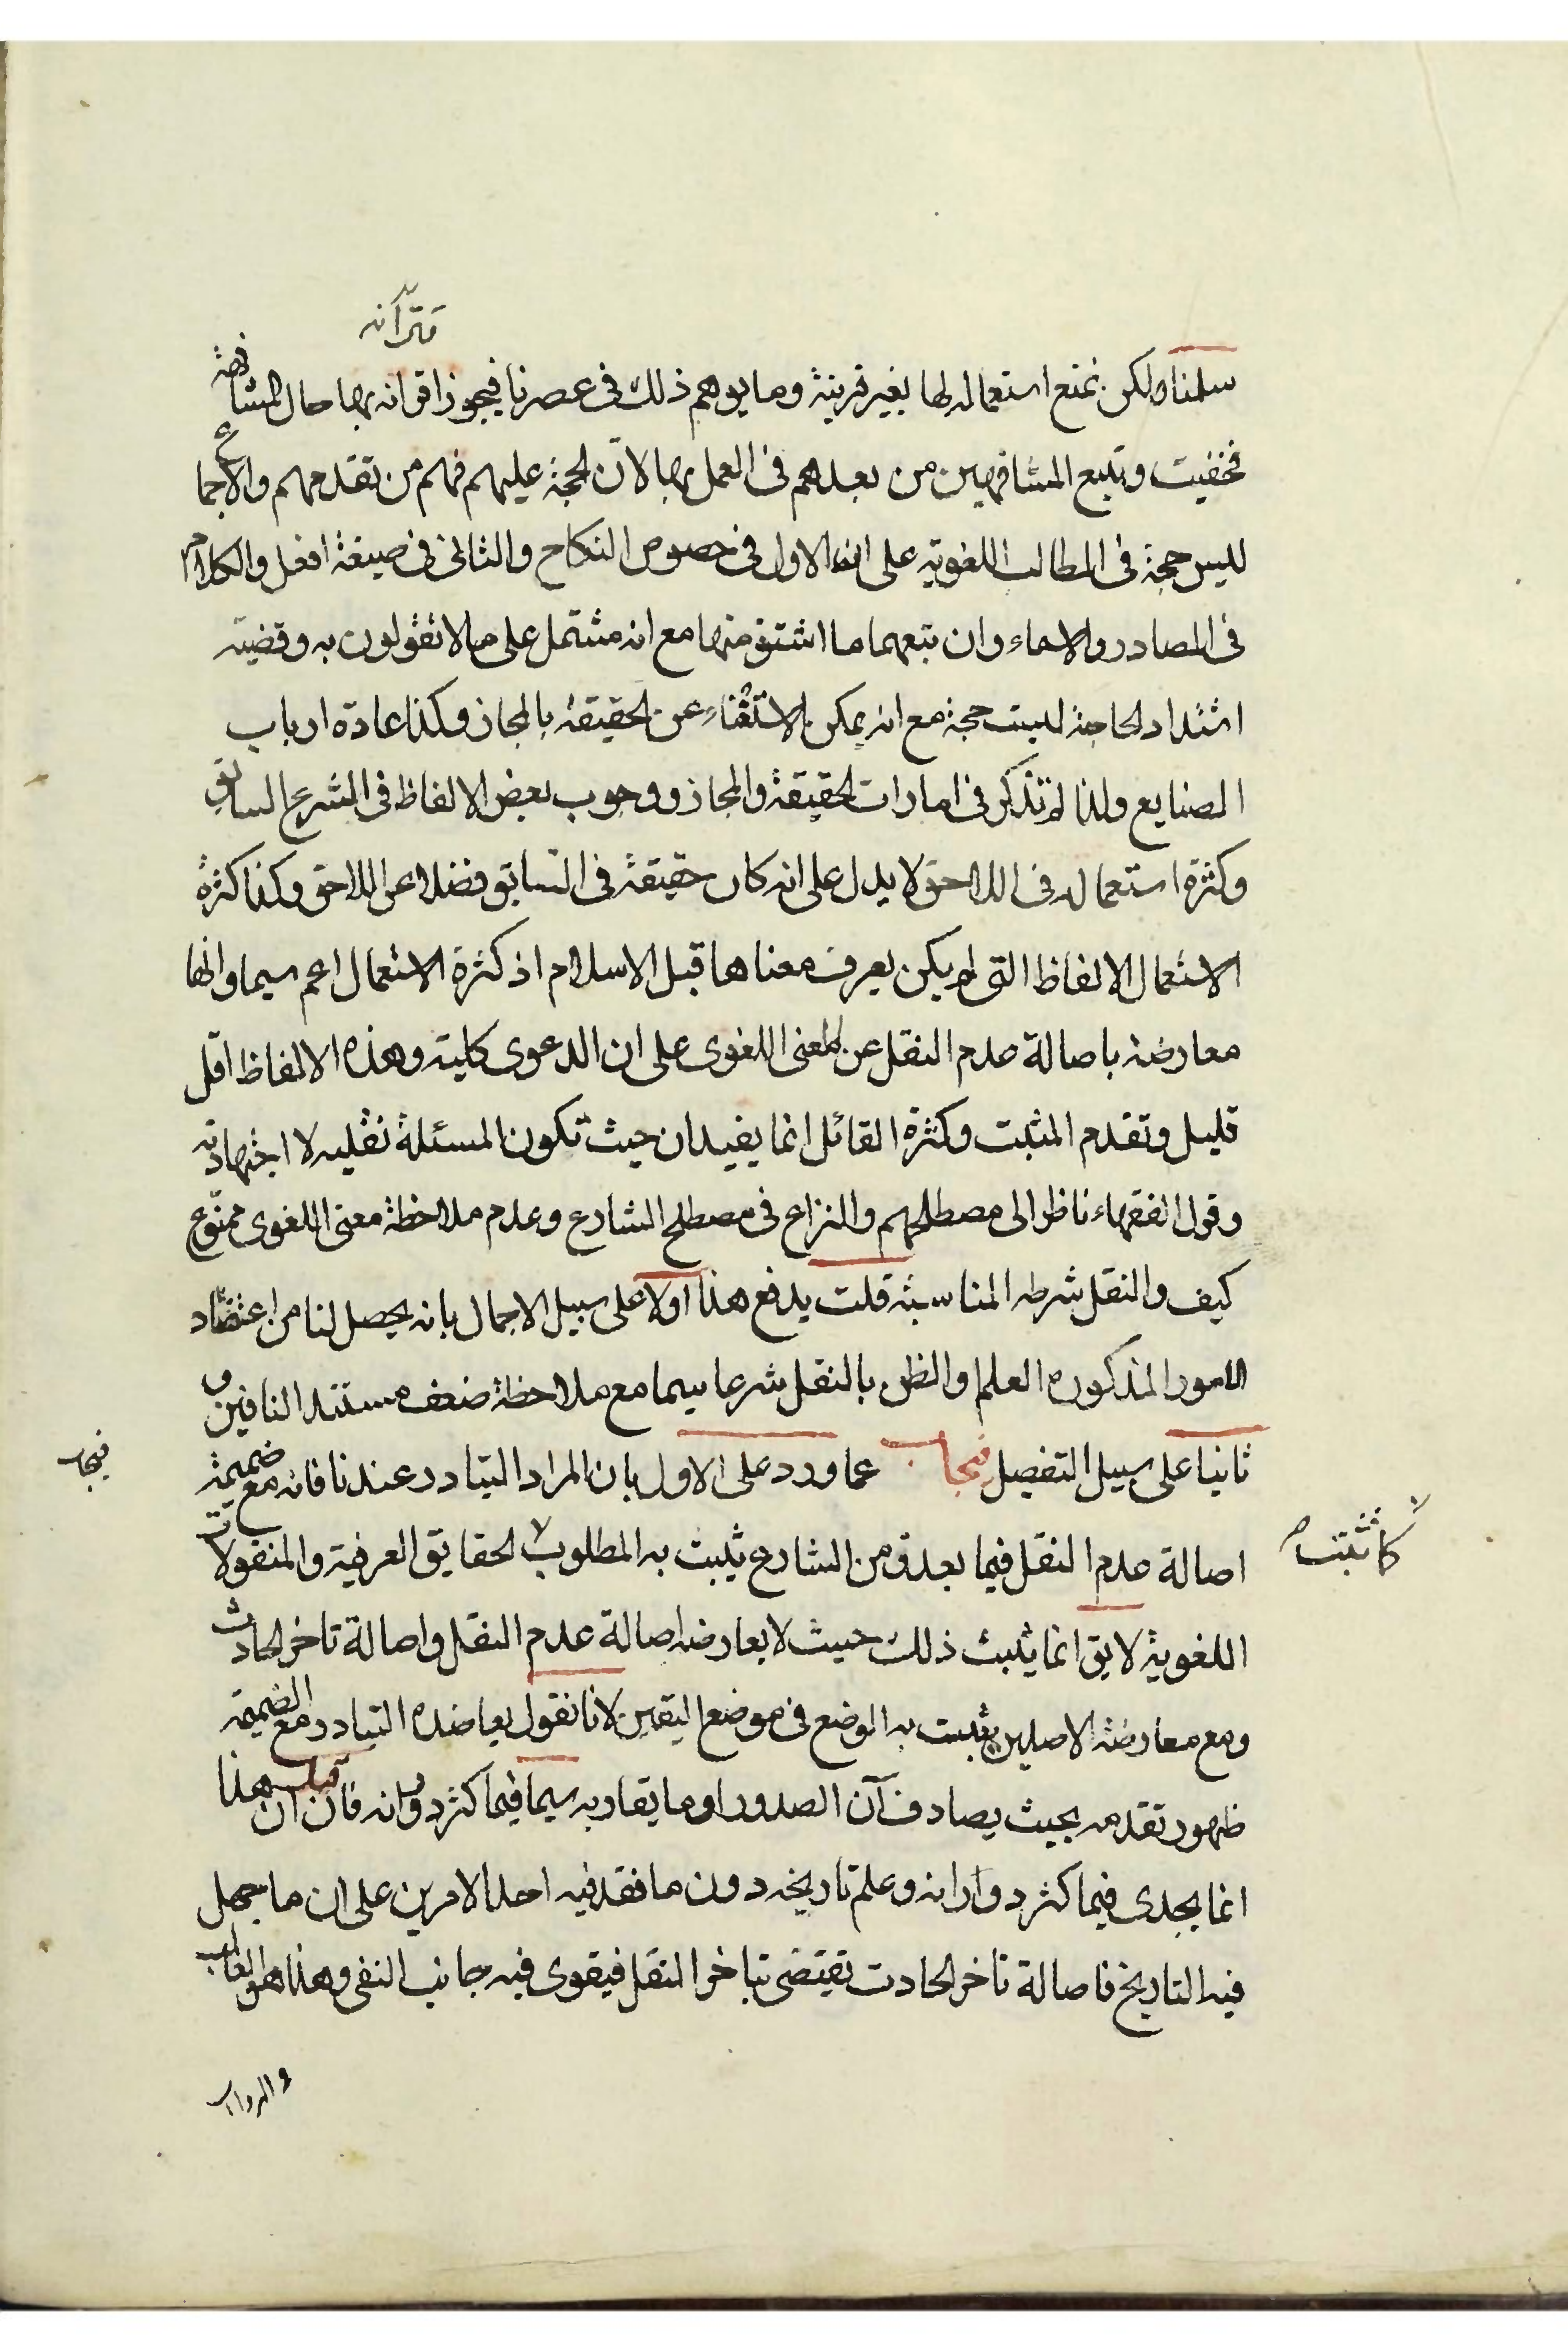 سلمنا ولكن نمنع استعماله لها بغير قرينة وما يوهم ذلك في عصرنا فيجوز اقترانه بها حال المشافهة
فخفيت وتبع المشافهين من بعدهم في العمل بها لان الحجة عليهم فهم من تقدمهم والاجماع
ليس حجة في المطالب اللغوية على ان الاول في خصوص النكاح والثاني في صيغة افعل والكلام
في المصادر والاسماء وان تبعهما ما اشتق منها مع انه مشتمل على ما لا تقولون به وقضية
اشتداد الحاجة ليست حجة مع انه يمكن الاستغناء عن الحقيقة بالمجاز وكذا عادة ارباب
الصنايع ولذا لم تذكر في امارات الحقيقة والمجاز ووجوب بعض الالفاظ في الشرع السابق
وكثرة استعماله في اللاحق لا يدل على انه كان حقيقة في السابق فضلا عن اللاحق وكذا كثرة
الاستعمال الالفاظ التي لم يكن يعرف معناها قبل الاسلام اذ كثرة الاستعمال اعم سيما وانها
معارضة باصالة عدم النقل عن المعنى اللغوى على ان الدعوى كلية وهذه الالفاظ اقل
قليل وتقدم المثبت وكثرة القائل انما يفيدان حيث تكون المسئلة نقليه لا اجتهاديه
وقول الفقهاء ناظر الى مصطلحهم والنزاع في مصطلح الشارع وعدم ملاحظة معنى اللغوى ممنوع
كيف والنقل شرطه المناسبة قلت يدفع هذا اولا على سبيل الاجمال بانه يحصل لنا من اعتضاد
الامور المذكوره العلم والظن بالنقل شرعا سيما مع ملاحظة ضعف مستند النافين و
ثانيا على سبيل التفصيل فيجاب عما ورد على الاول بان المراد التبادر عندنا فانه مع ضميمة
اصالة عدم النقل فيما بعد ومن الشارع يثبت به المطلوب الحقايق العرفية والمنقولات
كما تثبت به
فيجاب
اللغوية لا يق انما يثبت ذلك حيث لا يعارضه اصالة عدم النقل واصالة تاخر الحادث
ومع معارضة الاصلين يثبت به الوضع في موضع اليقين لانا نقول يعاضده التبادر مع الضميمة
ظهور تقدمه بحيث يصادف آن الصدور او ما يقاربه سيما فيما كثر دورانه فان قيل ان هذا
انما يجدى فيما كثر دورانه وعلم تاريخه دون ما فقد فيه احد الامرين على ان ما جهل
فيه التاريخ فاصالة تاخر الحادث تقتضى تاخر النقل فيقوى فيه جانب النفى وهذا هو الغالب